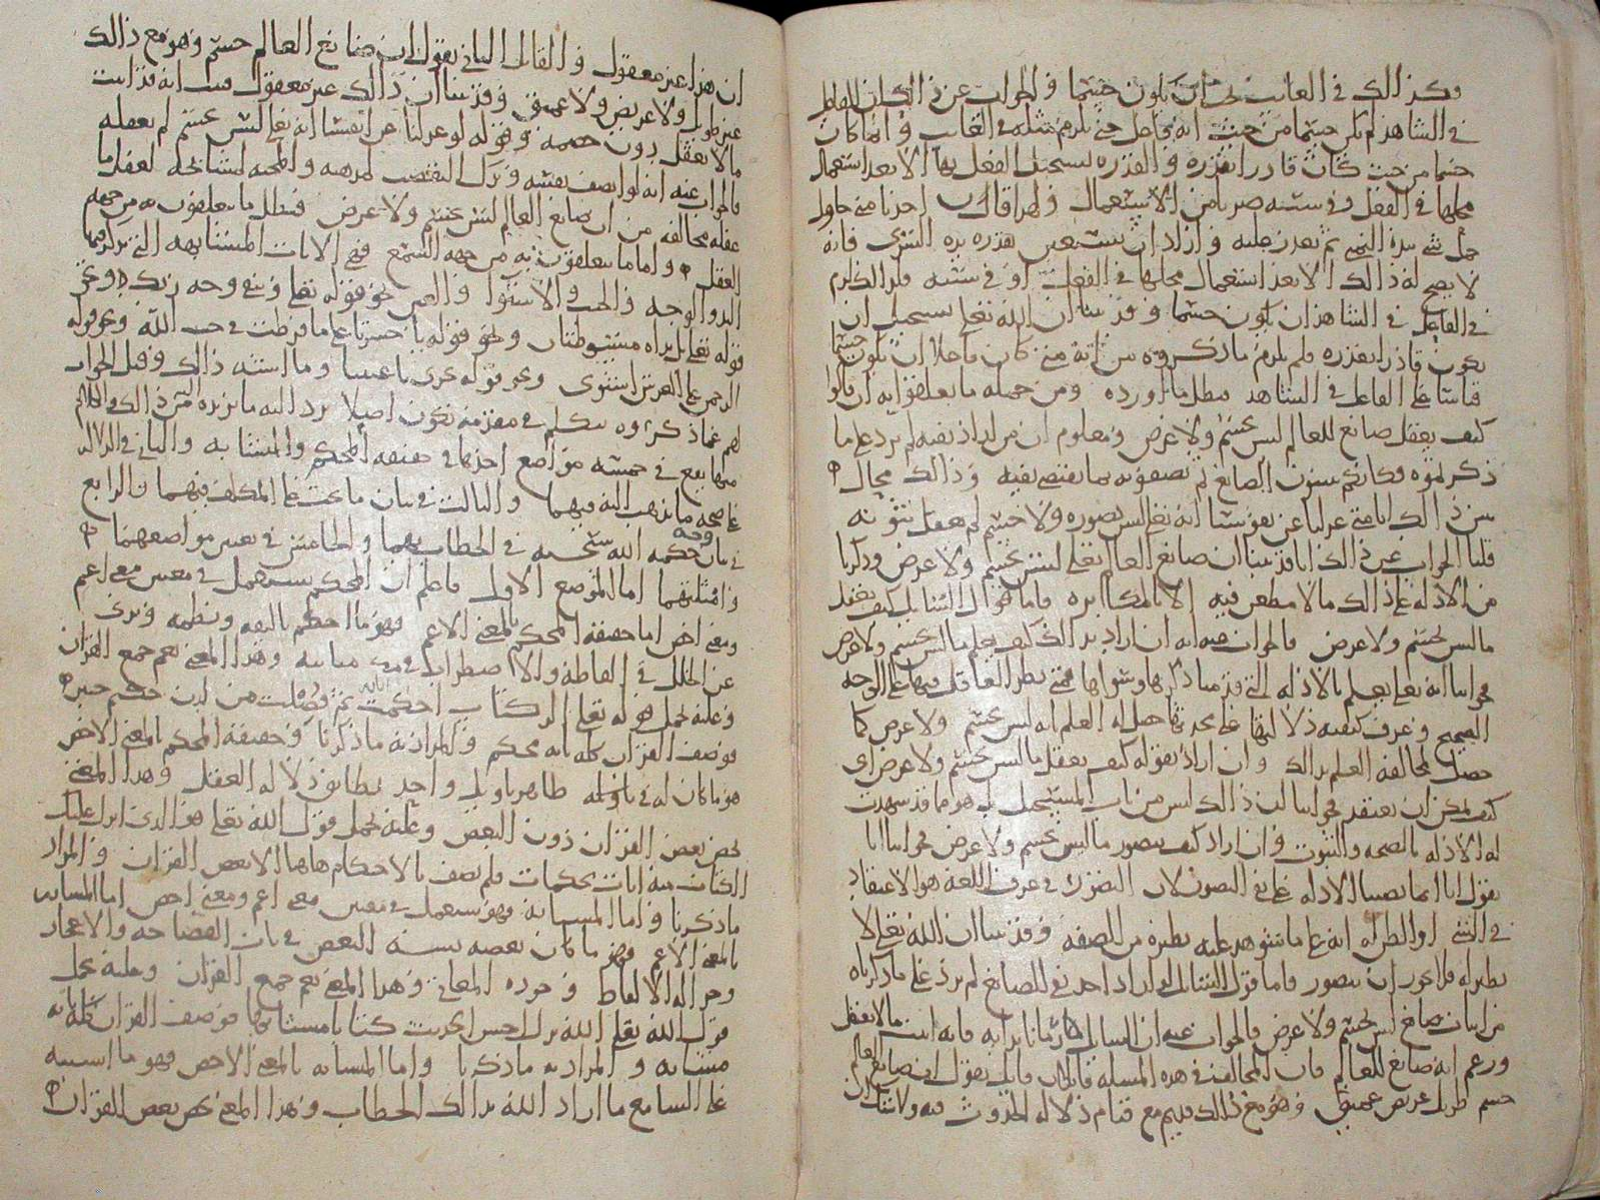 وكذالك في الغائب يجب ان يكون جسما والجواب عن ذالك ان الفاعل
في الشاهد لم يكن جسما من حيث انه فاعل حتى يلزم مثله في الغائب وانما كان
جسما من حيث كان قادرا بقدره والقدره يستحيل الفعل بها الا بعد استعمال
محلها في الفعل وفي سببه ضربا من الاستعمال ولهذا فان احدنا متى حاول
حمل شي بيده اليمنى ثم تعذر عليه واراد ان يستعين بقدره يده اليسرى فانه
لا يصح له ذالك الا بعد استعمال محلها في الفعل او في سببه فلذالك لزم
في الفاعل في الشاهد ان يكون جسما وقد بينا ان الله تعالى يستحيل ان
يكون قادرا بقدره فلم يلزم ما ذكروه من انه متى كان فاعلا ان يكون جسما
قياسا على الفاعل في الشاهد فبطل ما اورده ومن جمله ما يتعلقون به ان قالوا
كيف يعقل صانع للعالم ليس بجسم ولا عرض ومعلوم ان من اراد نفيه لم يزد على ما
ذكرتموه فكانكم تثبتون الصانع ثم تصفونه بما يقتضي نفيه وذالك محال
يبين ذالك انا متى عدلنا عن نفوسنا انه تعالى ليس بصوره ولا جسم لم نعقل ثبوته
قلنا الجواب عن ذالك انا قد بينا ان صانع العالم تعالى ليس بجسم ولا عرض وذكرنا
من الادله على ذالك ما لا مطعن فيه الا بالمكابره واما قول السائل كيف يعقل
ما ليس بجسم ولا عرض فالجواب عنه انه ان اراد بذالك كيف يعلم ما ليس بجسم ولا عرض
فجوابنا انه تعالى يعلم بالادله التي قد منا ذكرها وسواها فمتى نظر العاقل فيها على الوجه
الصحيح وعرف كيفيه دلالتها على محدثها حصل له العلم انه ليس بجسم ولا عرض كما
حصل لمخالفه العلم بذالك وان اراد بقوله كيف يعقل ما ليس بجسم ولا عرض اي
كيف يمكن ان يعتقد فجوابنا ان ذالك ليس من باب المستحيل بل هو مما قد شهدت
له الادله بالصحه والثبوت وان اراد كيف يتصور ما ليس بجسم ولا عرض فجوابنا انا
نقول انا انما نصبنا الادله على نفي التصور لان التصور في عرف اللغه هو الاعتقاد
في الشي او الظن له انه على ما شوهد عليه نظيره من الصفه وقد بينا ان الله تعالى لا
نظير له فلا يجوز ان يتصور فاما قول السائل لو اراد احد نفي الصانع لم يزد على ما ذكرناه
من اثبات صانع ليس بجسم ولا عرض فالجواب عنه ان السائل
ورعم انه صانع للعالم فان المخالف في هذه المسله قائلان قائل يقول ان صانع العالم
جسم طويل عريض عميق وهو مع ذالك قديم مع قيام دلاله الحدوث فيه ولا شك ان
ان هذا غير معقول والقائل الثاني يقول ان صانع العالم جسم وهو مع ذالك
غير طويل ولا عريض ولا عميق وقد بينا ان ذالك غير معقول فبينا انه قد اثبت
ما لا يعقل دون خصمه وقوله لو عدلنا عن انفسنا انه تعالى ليس بجسم لم نعقله
فالجواب عنه انه لو انصف نفسه وترك التعصب لمذهبه والمحبه لمشائخه لعقل ما
عقله مخالفه من ان صانع العالم ليس بجسم ولا عرض فبطل ما يتعلقون به من جهه
العقل واما ما يتعلقون به من جهه السمع فهي الايات المتشابهه التي يذكر فيها
اليد والوجه والجنب والاستوا والعين نحو قوله تعالى ويبقى وجه ربك ونحو
قوله تعالى بل يداه مبسوطتان ونحو قوله يا حسرتا على ما فرطت في جنب الله ونحو قوله
الرحمن على العرش استوى ونحو قوله تجري باعيننا وما اشبه ذالك وقبل الجواب
لهم عما ذكروه نتكلم في مقدمه تكون اصلا يرد اليه ما نريده من ذالك والكلام
فيها يقع في خمسه مواضع احدها في حقيقه المحكم والمتشابه والثاني في الدلاله
على صحه ما نذهب اليه فيهما والثالث في بيان ما يجب على المكلف فيهما والرابع
في بيان وجه حكمه الله سبحنه في الخطاب بهما والخامس في تعيين مواضعهما
وامثلتهما اما الموضع الاول فاعلم ان المحكم يستعمل في معنيين معنى اعم
ومعنى اخص اما حقيقه المحكم بالمعنى الاعم فهو ما احكم تاليفه ونظمه وتبرى
عن الخلل في الفاظه والاضطراب في معانيه وهذا المعنى يعم جميع القران
وعليه يحمل قوله تعالى الر كتاب احكمت اياته ثم فصلت من لدن حكيم خبير
فوصف القران كله بانه محكم والمراد به ما ذكرنا وحقيقه المحكم بالمعنى الاخص
هو ما كان له في تاويله ظاهر تاويل واحد يطابق دلاله العقل وهذا المعنى
يخص بعض القران دون البعض وعليه يحمل قول الله تعالى هو الذي انزل عليك
الكتاب منه ايات محكمات فلم يصف بالاحكام هاهنا الا بعض القران والمراد
ما ذكرنا واما المتشابه فهو يستعمل في معنيين معنى اعم ومعنى اخص اما المتشابه
بالمعنى الاعم فهو ما كان بعضه يشبه البعض في باب الفصاحه والاعجاز
وجزاله الالفاظ وجوده المعاني وهذا المعنى يعم جميع القران وعليه يحمل
قول الله تعالى الله نزل احسن الحديث كتابا متشابها فوصف القران كله بانه
متشابه والمراد به ما ذكرنا واما المتشابه بالمعنى الاخص فهو ما اشتبه
على السامع ما اراد الله بذالك الخطاب وهذا المعنى يخص بعض القران